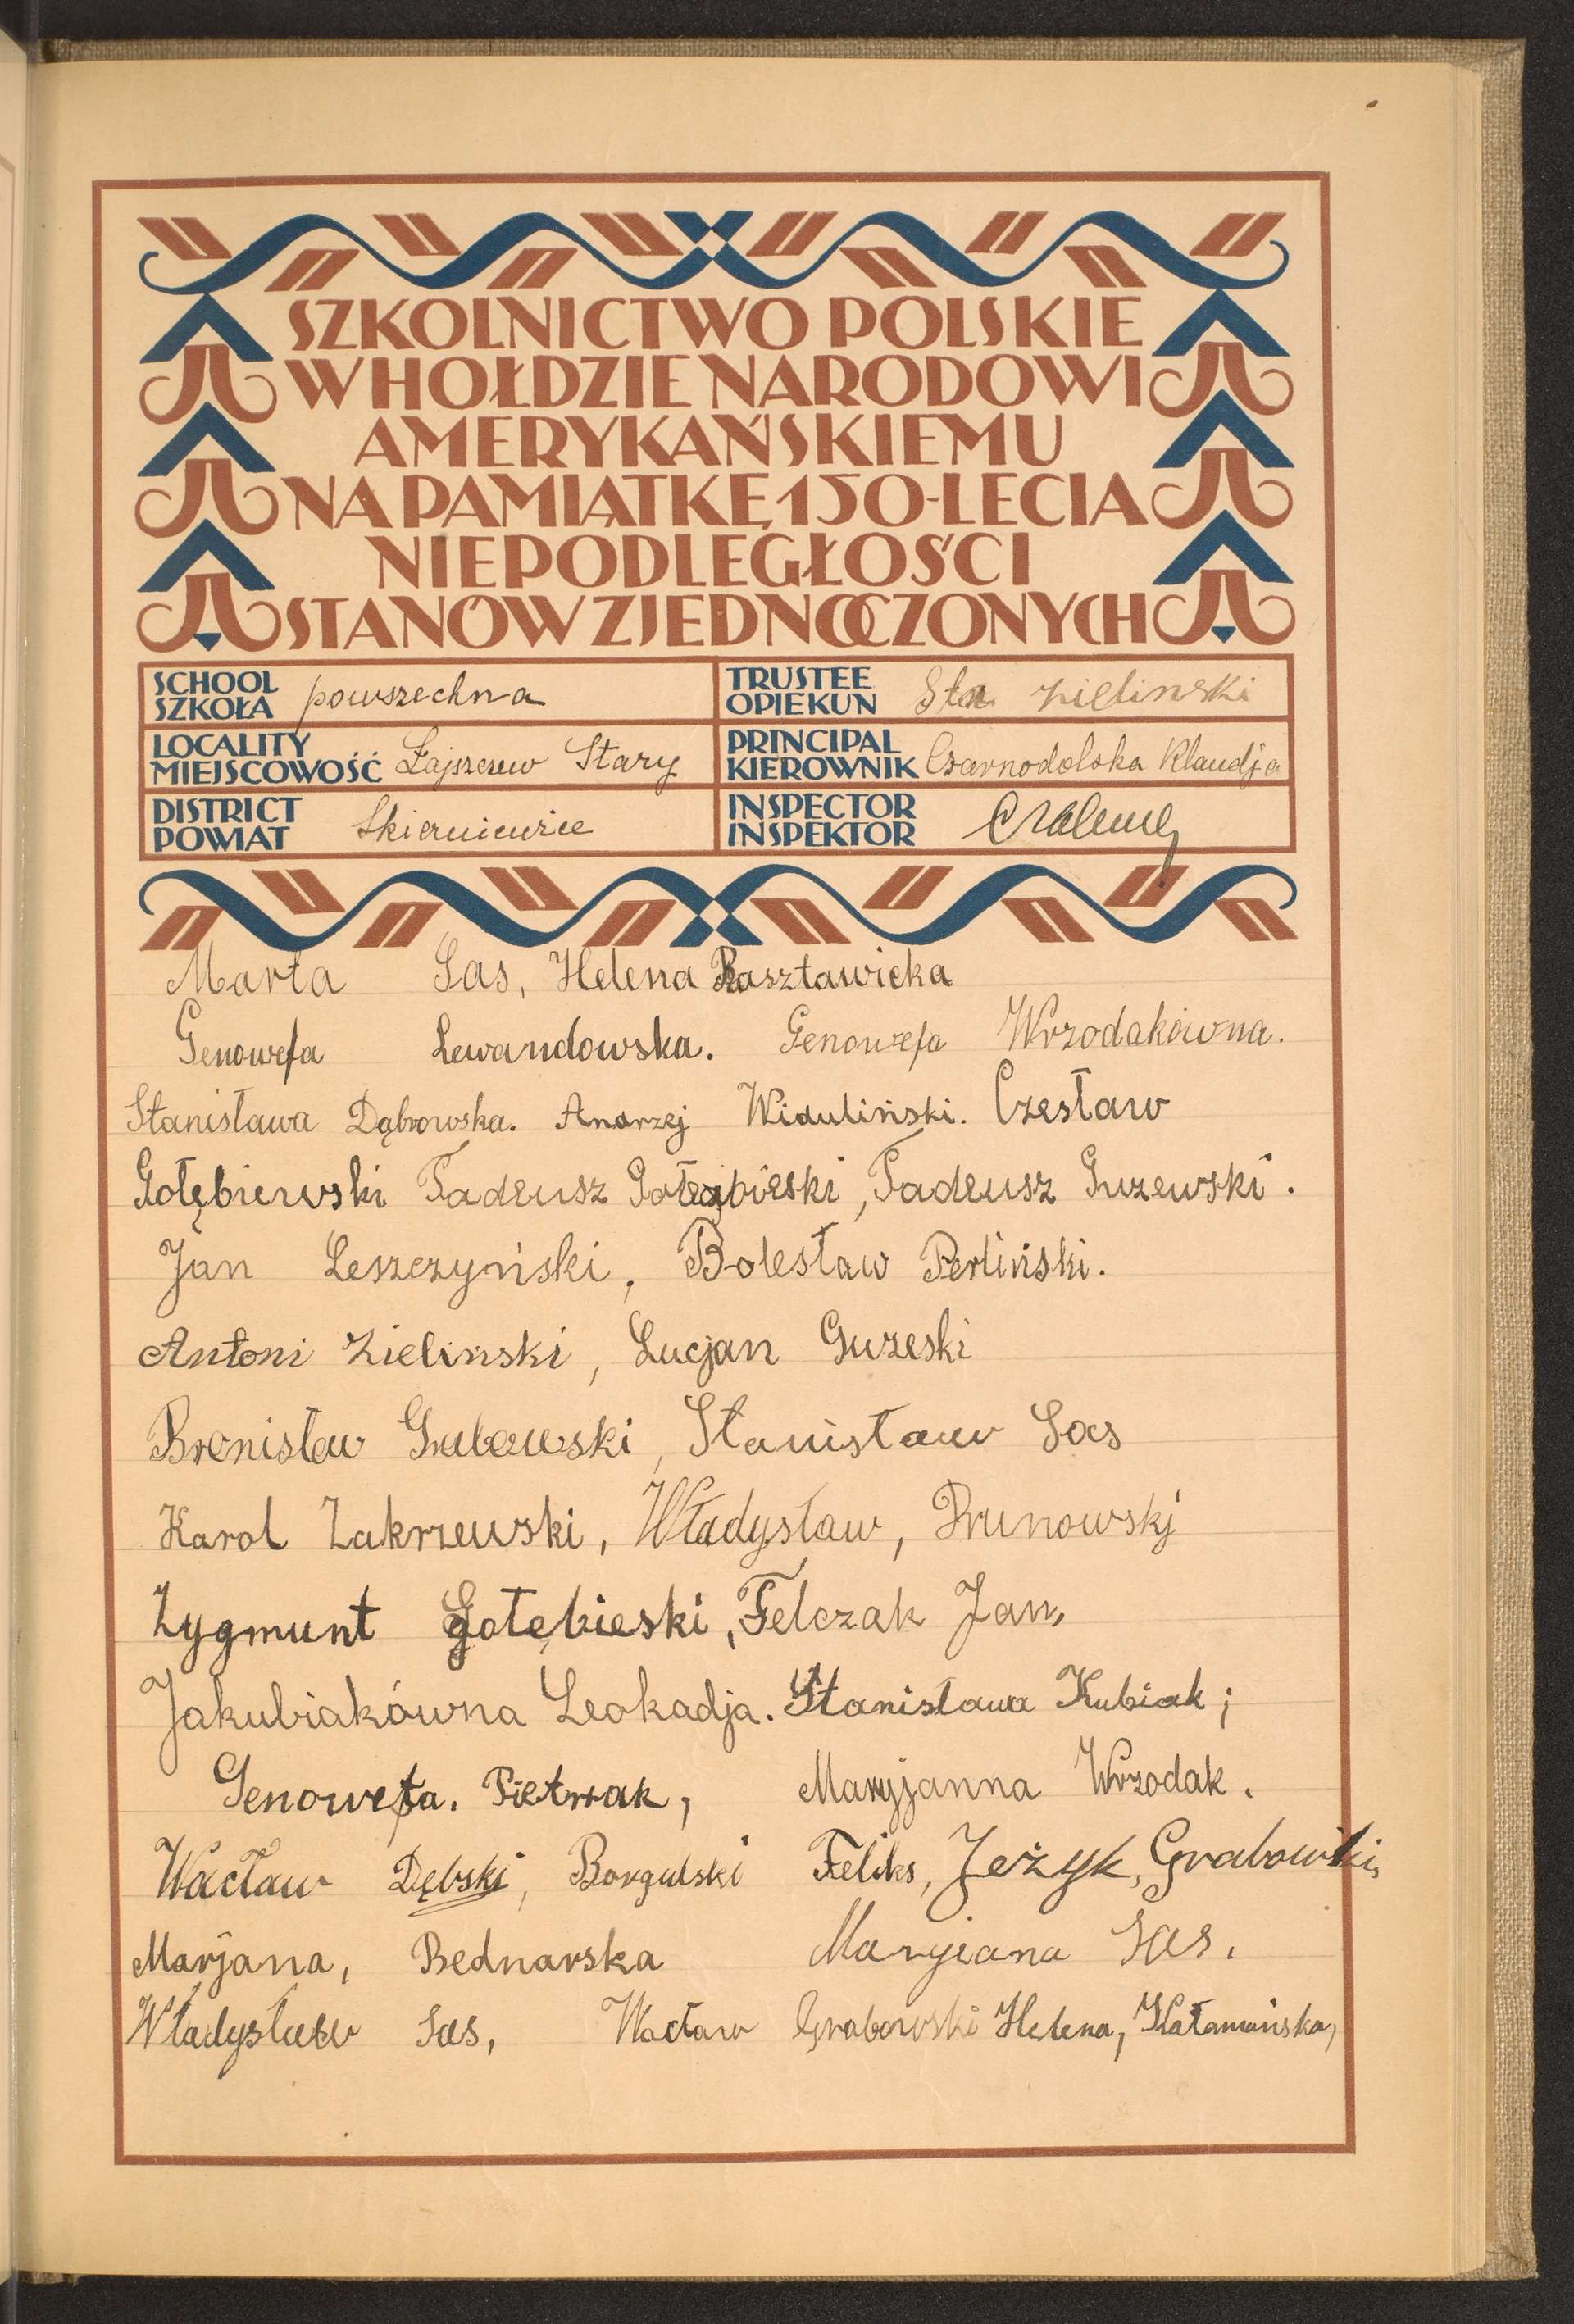 SZKOLNICTWO POLSKIE
W HOŁDZIE NARODOWI
AMERYKAŃSKIEMU
NA PAMIĄTKĘ 150-LECIA
NIEPODLEGŁOŚCI
STANÓW ZJEDNOCZONYCH
SCHOOL
SZKOŁA powszechna
TRUSTEE
OPIEKUN Sta Zielinski
LOCALITY
MIEJSCOWOŚĆ Łajszczew Stary
PRINCIPAL
KIEROWNIK Czarnodolska Klaudja
DISTRICT
POWIAT Skierniewice
INSPECTOR
INSPEKTOR
Marta Sas, Helena Rasztawicka
Genowefa Lewandowska. Genowefa Wrzodakówna.
Stanisława Dąbrowska. Andrzej Widuliński. Czesław
Gołębiewski Tadeusz Gołębieski, Tadeusz Guzewski.
Jan Leszczyński, Bolesław Perliński.
Antoni Zielinski, Lucjan Guzeski
Bronisław Stanisław Sas
Karol Zakrzewski, Władysław, Prunowski
Zygmunt Gołębieski, Felczak Jan,
Jakubiakówna Leokadja. Stanisława Kubiak;
Genowefa. Pietrzak, Maryjanna Wrzodak.
Wacław Dębski, Borgulski Feliks, Jeżyk, Grabowski,
Marjana, Bednarska Maryiana Sas.
Władysław Sas, Wacław Grabowski Helena, Kałamańska,